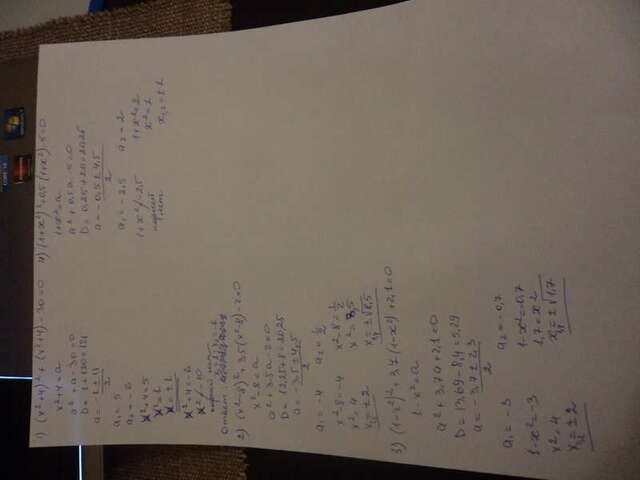 1) (x²+4)²+(x²+4)-30=0
x²+4=a
a²+a-30=0
D=1+120=121
a=-1±11/2
a₁=5
a₂=-6
x²+4=5
x²=1
x=±1
x²+4=-6
x²≠-10
2) (x²-8)²+3,5(x²-8)-2=0
x²-8=a
a²+3,5a-2=0
D=12,25+8=20,25
a=-3,5±4,5/2
a₁=-4 a₂=½
x²-8=-4 x²-8=½
x²=4 x²=8,5
x=±2 x=±√8,5
3) (1-x²)²+3,7(1-x²)+2,1=0
1-x²=a
a²+3,7a+2,1=0
D=13,69-8,4=5,29
a=-3,7±2,3/2
a₁=-3 a₂=-0,7
1-x²=-3 1-x²=-0,7
x²=4 1,7=x²
x=±2 x=±√1,7
4) (1+x²)²+0,5(1+x²)-5=0
1+x²=a
a²+0,5a-5=0
D=0,25+20=20,25
a=-0,5±4,5/2
a₁=-2,5 a₂=2
1+x²≠-2,5 1+x²=2
корней x²=1
нет x₁,₂=±1